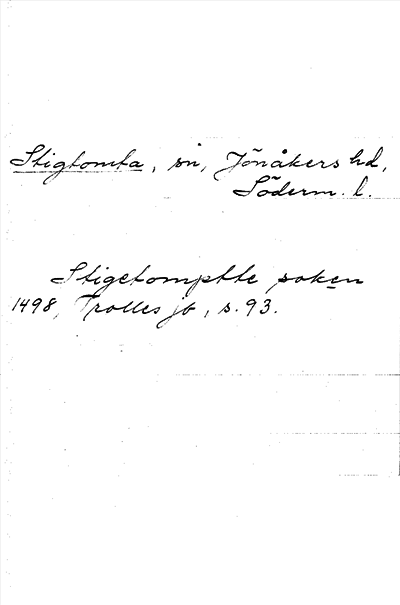 Stigtomta, sn, Jönåkers hd,
Söderm. l.
Stigetomptte soken
1498, Trolles jb, s. 93.